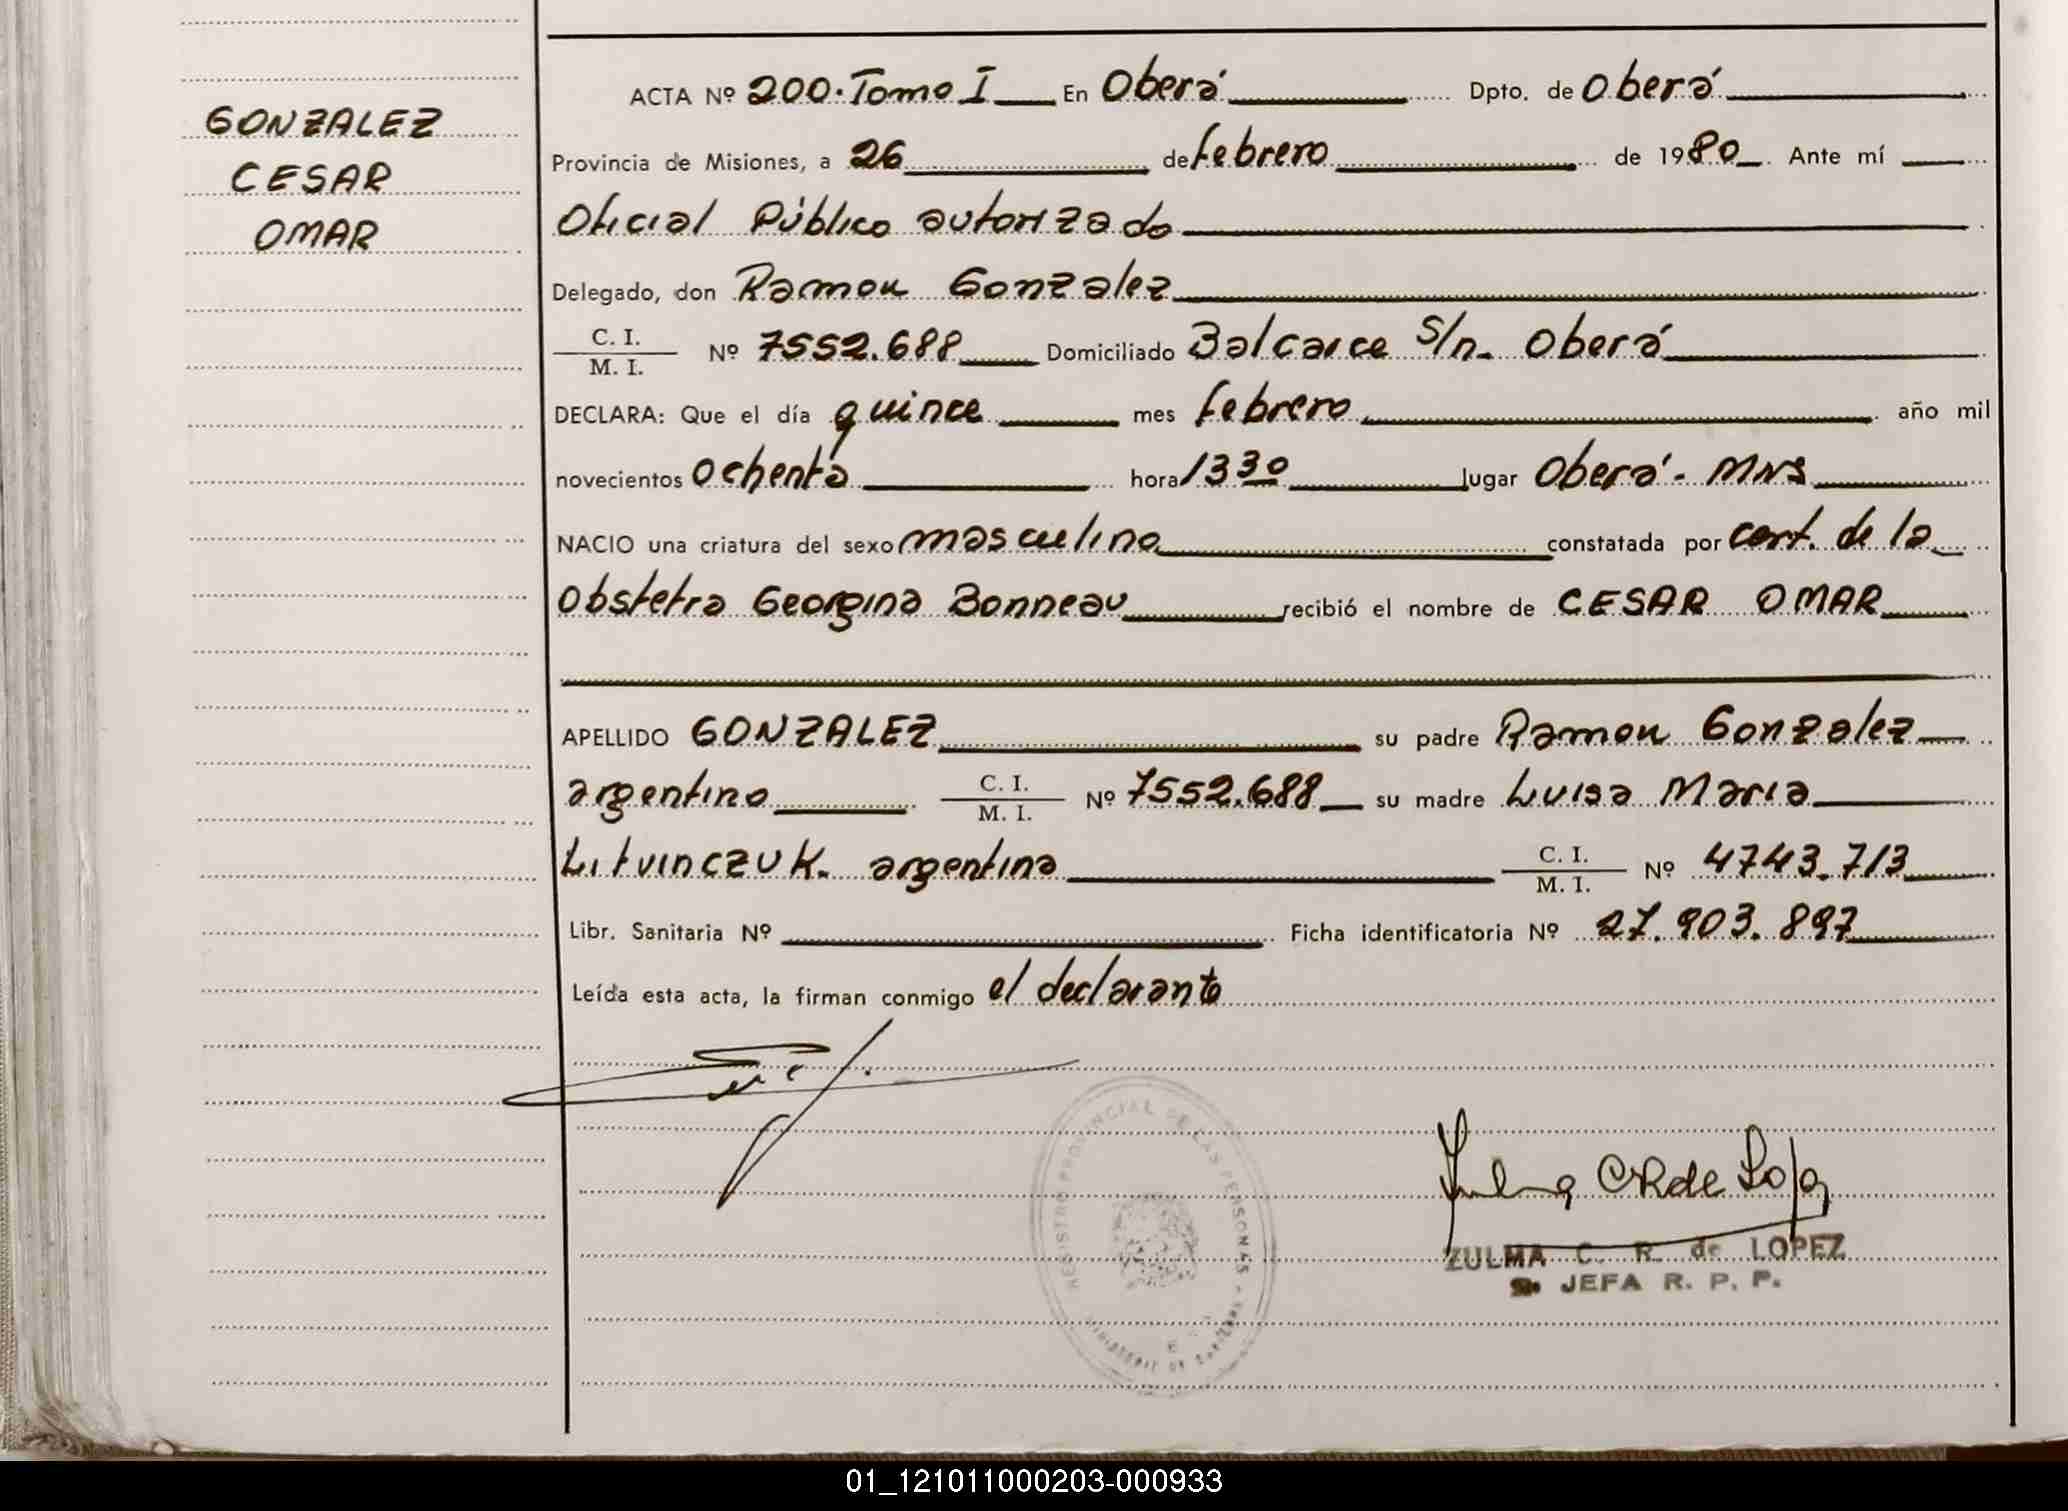 GONZALEZ
CESAR
OMAR
ACTA Nº 200. Tomo I En Oberá Dpto. de Oberá
Provincia de Misiones, a 26 de febrero de 1980. Ante mí
Oficial Público autorizado
Delegado, don Ramon Gonzalez
C. I.
M. I. Nº 7552.688 Domiciliado Balcarce S/n. Oberá
DECLARA: Que el día quince mes febrero año mil
novecientos Ochenta hora 13 30 lugar Oberá - MNS
NACIO una criatura del sexo masculino constatada por cert. de la
Obstetra Georgina Bonneau recibió el nombre de CESAR OMAR
APELLIDO GONZALEZ su padre Ramon Gonzalez
argentino C. I.
M. I. Nº 7552.688 su madre Luisa Maria
Litvinczuk. argentina C. I.
M. I. Nº 4743.713
Libr. Sanitaria Nº Ficha identificatoria Nº 27.903.897
Leída esta acta, la firman conmigo el declarante
REGISTRO PROVINCIAL DE LAS PERSONAS
Zulma C R de Lopez
ZULMA C. R. de LOPEZ
JEFA R. P. P.
01_121011000203-000933